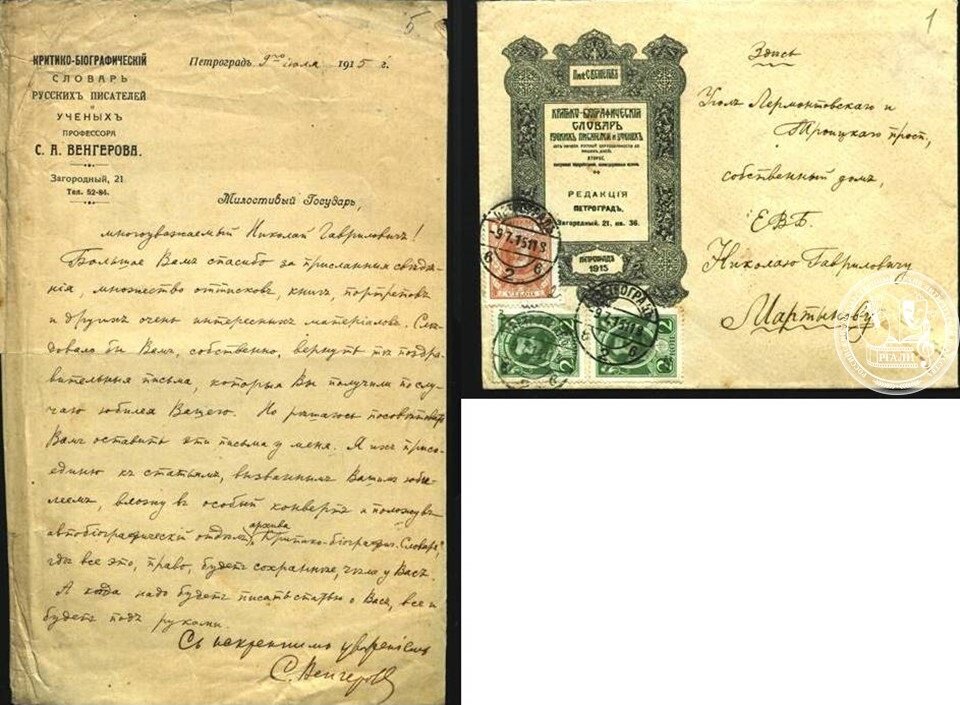 5
КРИТИКО-БІОГРАФИЧЕСКІЙ
СЛОВАРЬ
РУССКИХЪ ПИСАТЕЛЕЙ
И
УЧЕНЫХЪ
ПРОФЕССОРА
С. А. ВЕНГЕРОВА.
Загородный, 21
Тел. 52-84.
Петроградъ, 9го іюля 1915 г.
Милостивый Государь,
многоуважаемый Николай Гавриловичъ!
Большое Вамъ спасибо за присланныя свѣдѣ-
нія, множество оттисковъ, книгъ, портретовъ
и другихъ очень интересныхъ матеріаловъ. Слѣ-
довало бы Вамъ, собственно, вернуть тѣ поздра-
вительныя письма, которыя Вы получили по слу-
чаю юбилея Вашего. Но рѣшаюсь посовѣтовать
Вамъ оставить эти письма у меня. Я ихъ присо-
единю къ статьямъ, вызваннымъ Вашимъ юби-
леемъ, вложу въ особый конвертъ и положу въ
автобіографическій отдѣлъ архива Критико-біографич. Словаря,
гдѣ все это, право, будетъ сохраннѣе, чѣмъ у Васъ.
А когда надо будетъ писать статью о Васъ, все и
будетъ подъ руками.
Съ искреннимъ уваженіемъ
С. Венгеровъ
1
КРИТИКО-БІОГРАФИЧЕСКІЙ
СЛОВАРЬ
РУССКИХЪ ПИСАТЕЛЕЙ И УЧЕНЫХЪ
РЕДАКЦІЯ
ПЕТРОГРАДЪ,
Загородный, 21, кв. 36.
ПЕТРОГРАДЪ
1915
Здѣсь
Уголъ Лермонтовскаго и
Троицкаго просп.,
собственный домъ,
ЕВБ.
Николаю Гавриловичу
Мартынову
ПЕТРОГРАДЪ
-9.7.15
6 2 6
ПЕТРОГРАДЪ
-9.7.15
6 2 6
2
2
РГАЛИ